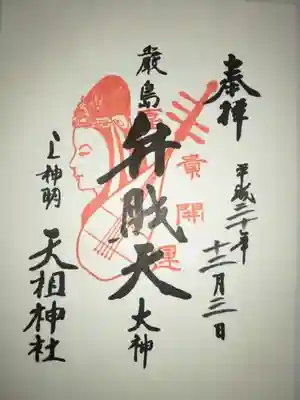 奉拝
平成三十年
十二月三日
厳島
弁財天
大神
上神明
天祖神社